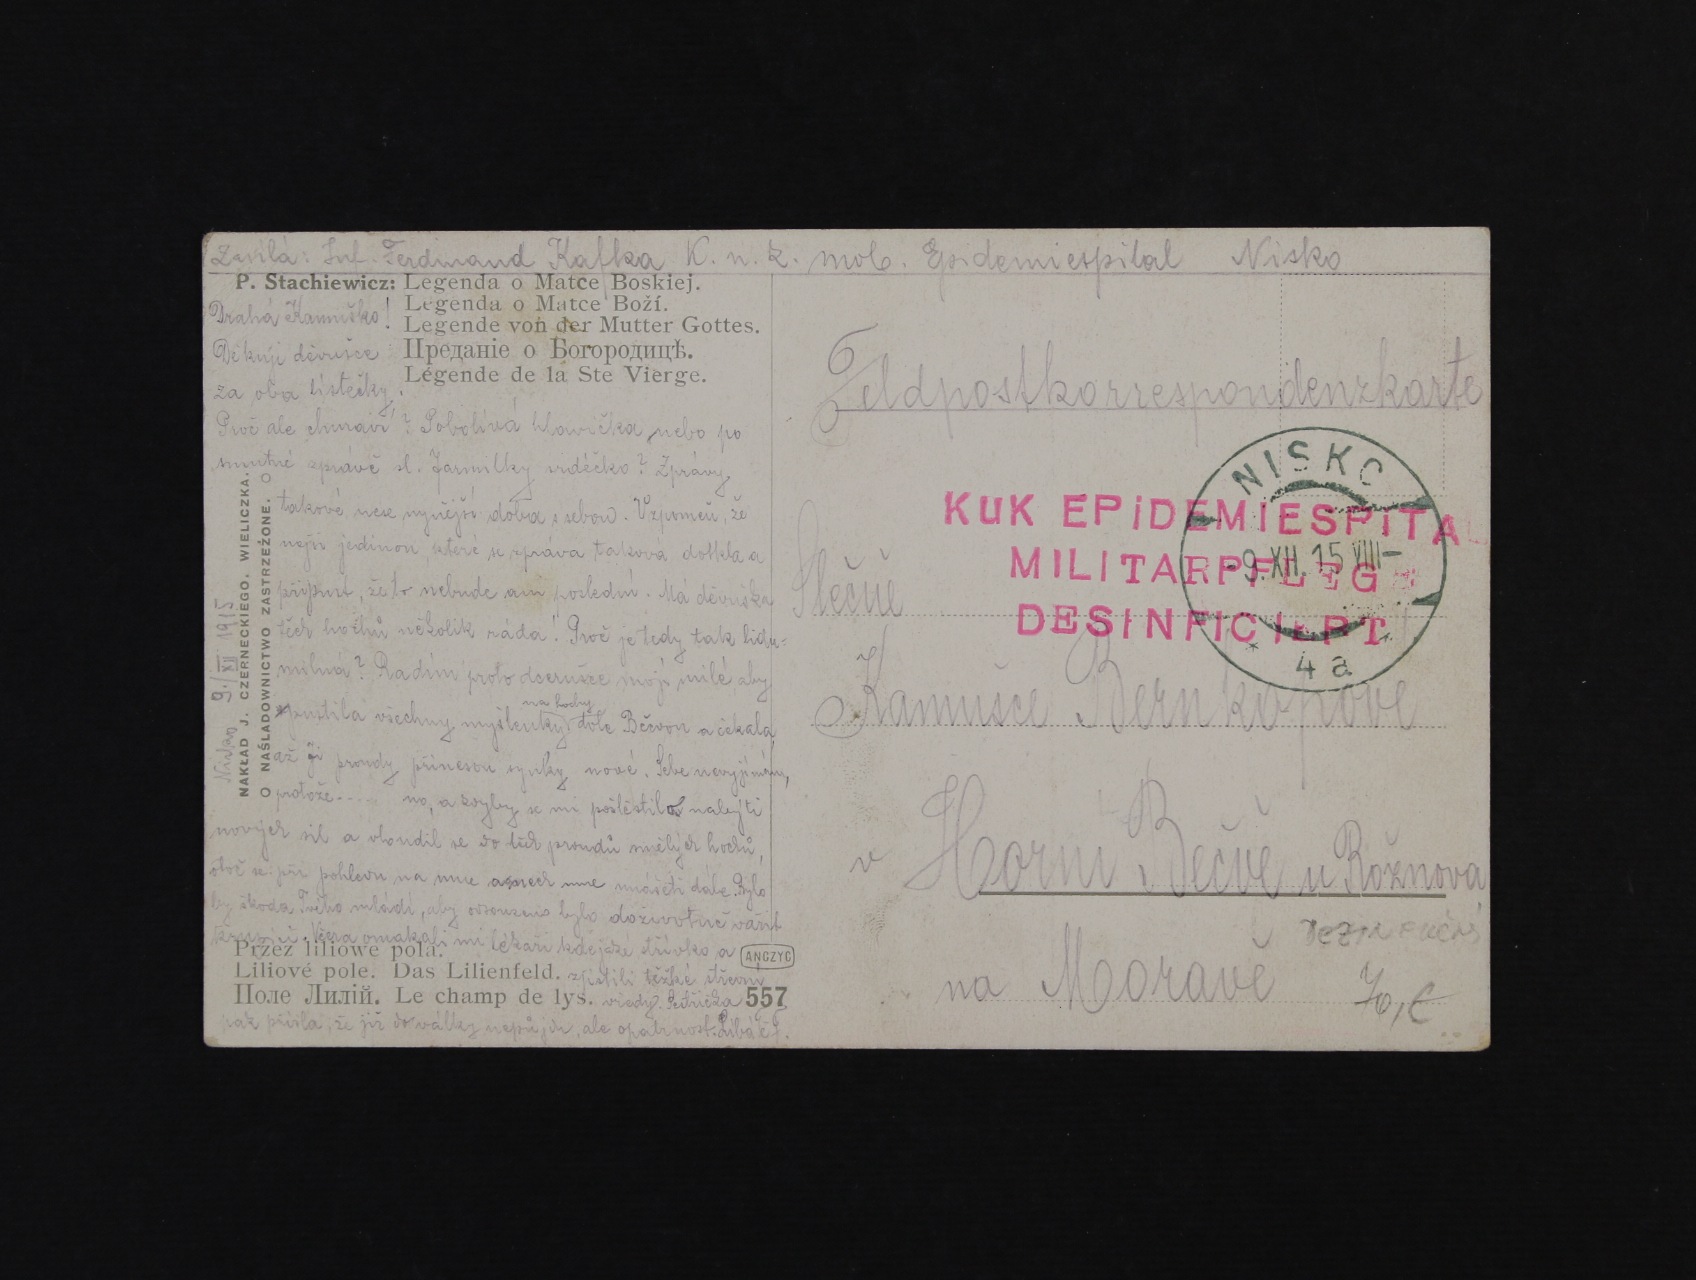 Zasílá: Inf. Ferdinand Kafka K. u. k. mob. Epidemiespital Nisko
P. Stachiewicz: Legenda o Matce Boskiej.
Legenda o Matce Boží.
Legende von der Mutter Gottes.
Преданіе о Богородицѣ.
Légende de la Ste Vierge.
Drahá Kamuško!
Děkuji děvušce
za oba lístečky.
Proč ale churaví? Pobolívá hlavička, nebo po
smutné zprávě sl. Jarmilky srdéčko? Zprávy
takové nese nynější doba s sebou. Vzpomeň, že
nejsi jedinou které se zpráva taková dotkla a
připust, že to nebude ani poslední. Má děvuška
těch hochů několik ráda! Proč je tedy tak
? Radím proto dcerušce mojí milé, aby
na hochy
spustila všechny myšlenky dole Bečvou a čekala,
až jí proudy přinesou synky nové. Sebe nevyjímám,
protože..... no, a kdyby se mi poštěstilo nalejti
nových sil a vloudil se do těch proudů smělých hochů,
otoč se při pohledu na mne a nech mne unášeti dále. Bylo
by škoda Tvého mládí, aby odsouzeno bylo doživotně vařit
Včera omakali mi lékaři kdejaké střívko a
zjistili těžké
vředy.
pak přišla, že již do války nepůjdu, ale opatrnost. Líbá Tě F.
Nisko 9./XII 1915
NAKŁAD J. CZERNECKIEGO. WIELICZKA.
O NAŚLADOWNICTWO ZASTRZEŻONE. O
Przez liliowe pola.
Liliové pole. Das Lilienfeld.
Поле Лилій. Le champ de lys.
ANCZYC
557
Feldpostkorrespondenzkarte
KUK EPIDEMIESPITAL
MILITARPFLEG
DESINFICIERT
NISKO
-9.XII.15 VIII-
* 4a
Slečně
Kamušce Bernkopove
v Horní Bečvě u Rožnova
na Moravě
70,€